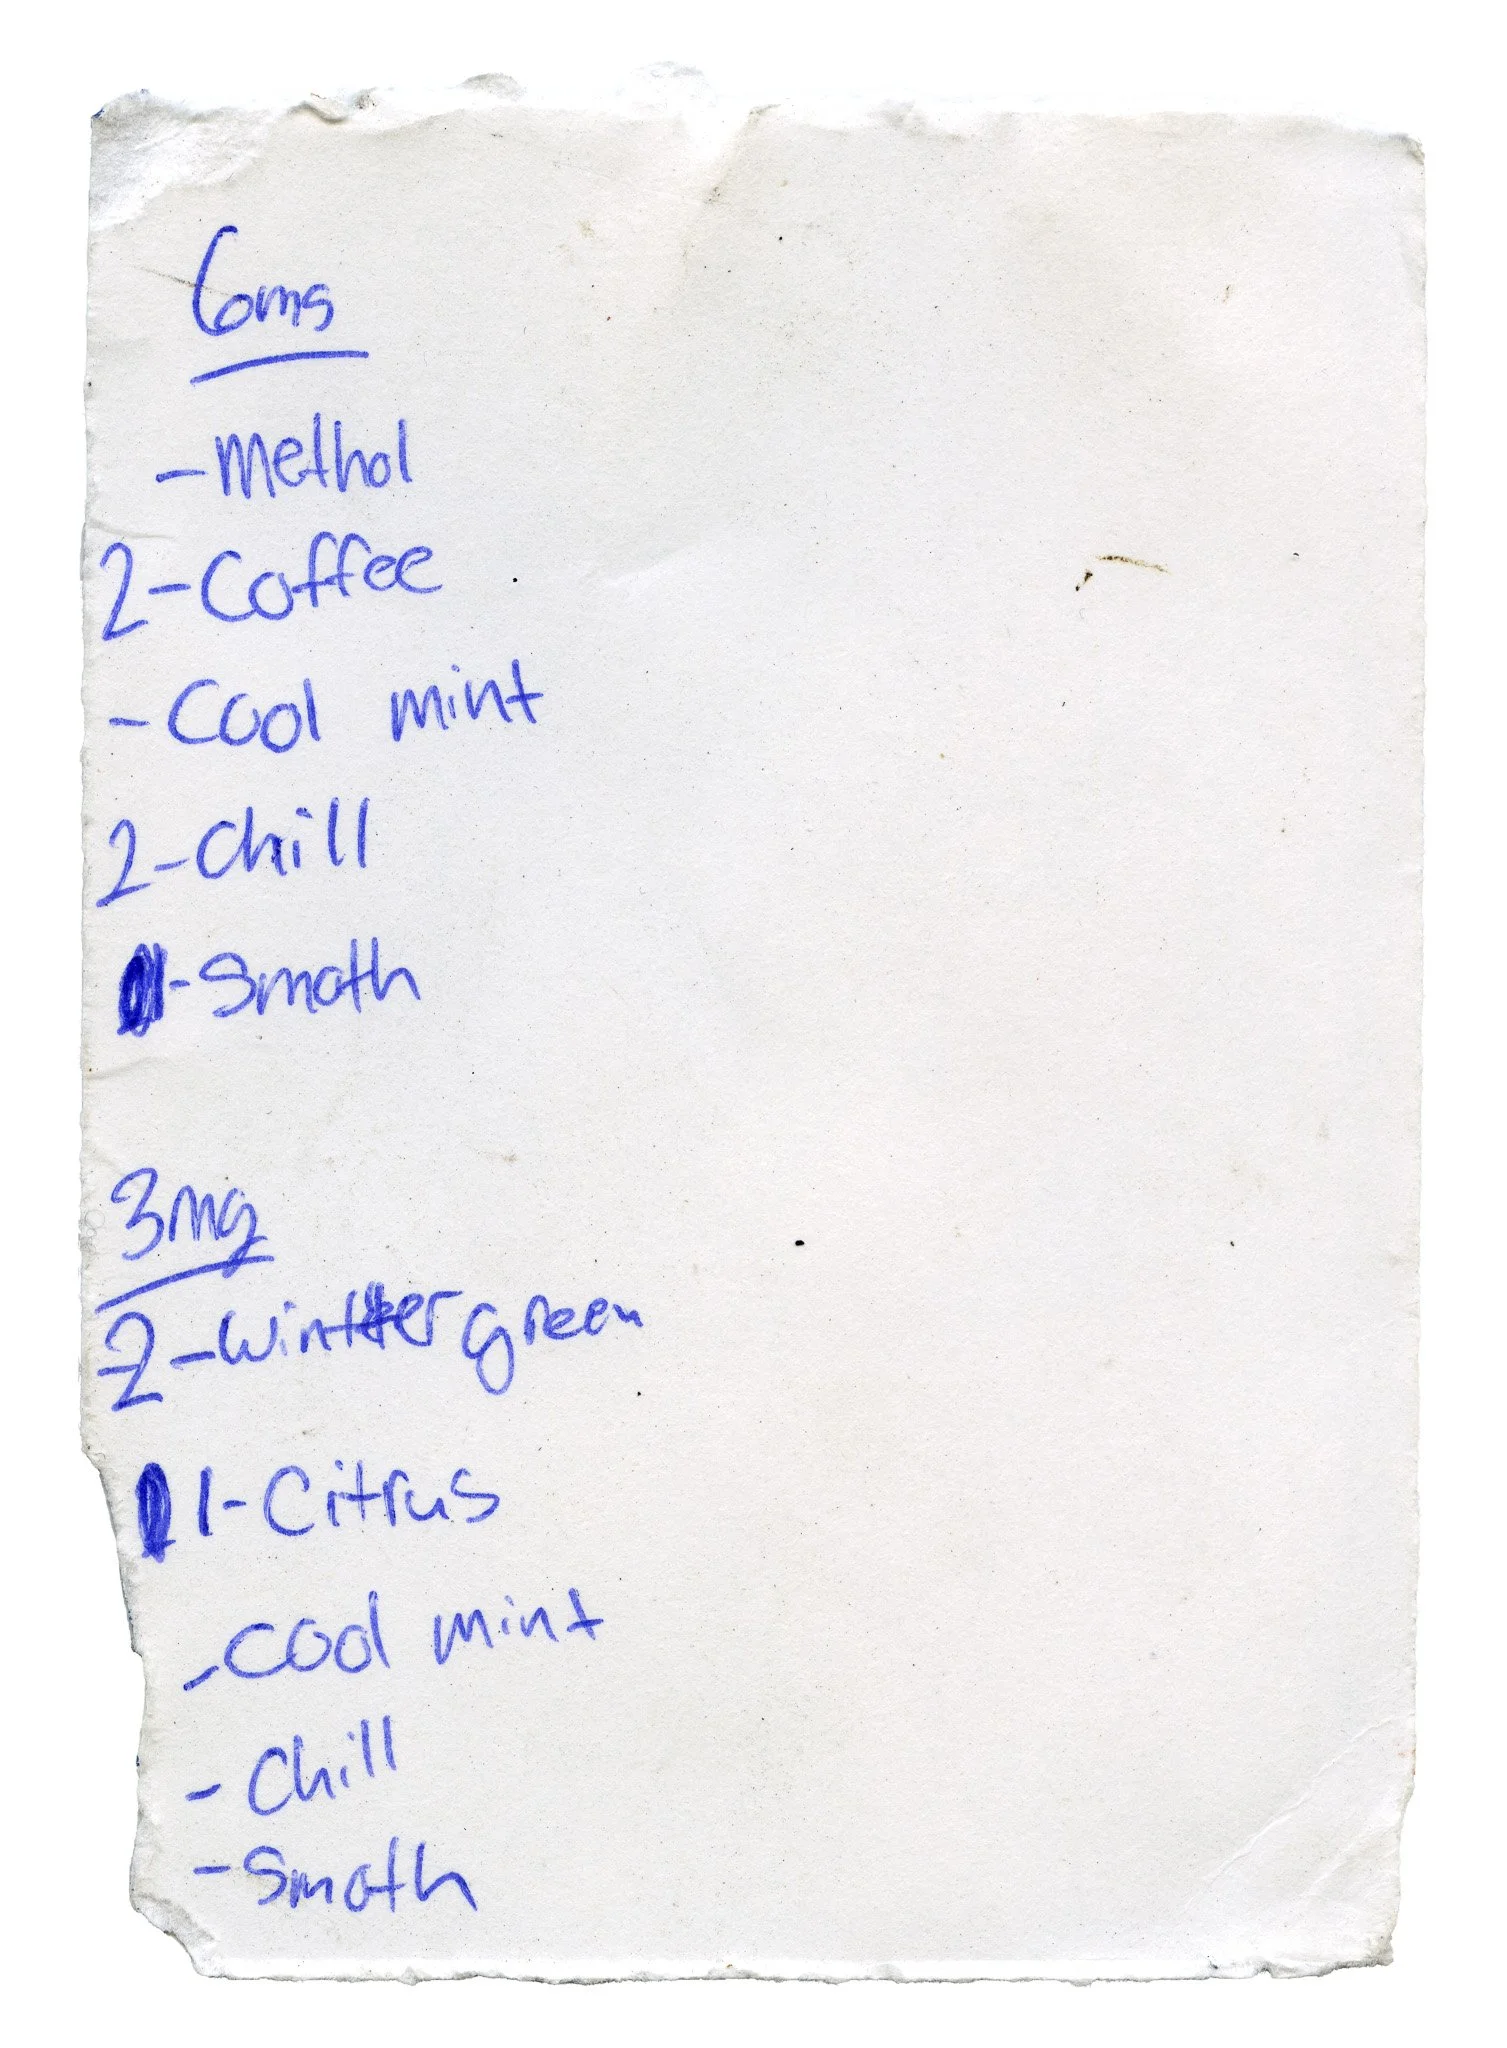 6mg
- Methol
2 - Coffee
- Cool mint
2 - Chill
- Smoth
3mg
2 - Wintter green
1 - Citrus
- Cool mint
- Chill
- Smoth